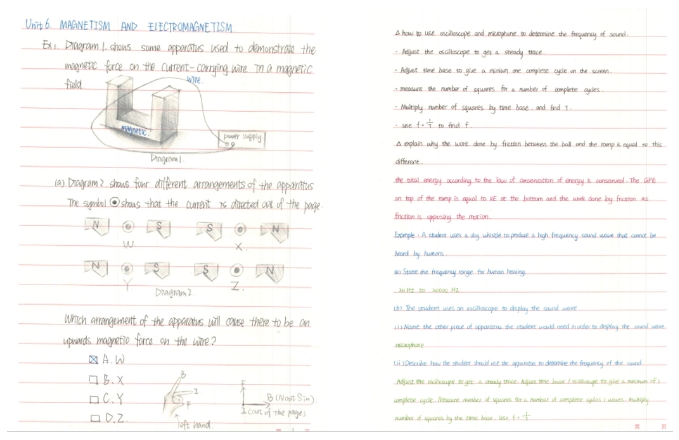 Unit 6. MAGNETISM AND ELECTROMAGNETISM
Ex: Diagram 1 shows some apparatus used to demonstrate the
magnetic force on the current-carrying wire in a magnetic
field.
wire
magnetic
power supply
Diagram 1
(a) Diagram 2 shows four different arrangements of the apparatus
The symbol ⊙ shows that the current is directed out of the page
N S S N
W X
N S S N
Y Z
Diagram 2
Which arrangement of the apparatus will cause there to be an
upwards magnetic force on the wire?
☒ A. W
☐ B. X
☐ C. Y
☐ D. Z
B
I
F
left hand
F
B (N out S in)
I (out of the page)
Δ how to use oscilloscope and microphone to determine the frequency of sound
- Adjust the oscilloscope to get a steady trace
- Adjust time base to give a minimum one complete cycle on the screen
- measure the number of squares for a number of complete cycles
- Multiply number of squares by time base and find T
- use f = 1/T to find f
Δ explain why the work done by friction between the ball and the ramp is equal to this
difference.
the total energy according to the law of conservation of energy is conserved. The GPE
on top of the ramp is equal to KE at the bottom and the work done by friction as
friction is opposing the motion.
Example: A student uses a dog whistle to produce a high frequency sound wave that cannot be
heard by humans.
(a) State the frequency range for human hearing
20 Hz to 20000 Hz
(b) The student uses an oscilloscope to display the sound wave
(i) Name the other piece of apparatus the student would need in order to display the sound wave
microphone
(ii) Describe how the student should use the apparatus to determine the frequency of the sound
Adjust the oscilloscope to get a steady trace. Adjust time base / oscilloscope to give a minimum of a
complete cycle. Measure number of squares for a number of complete cycles / waves. multiply
number of squares by the time base. Use f = 1/T